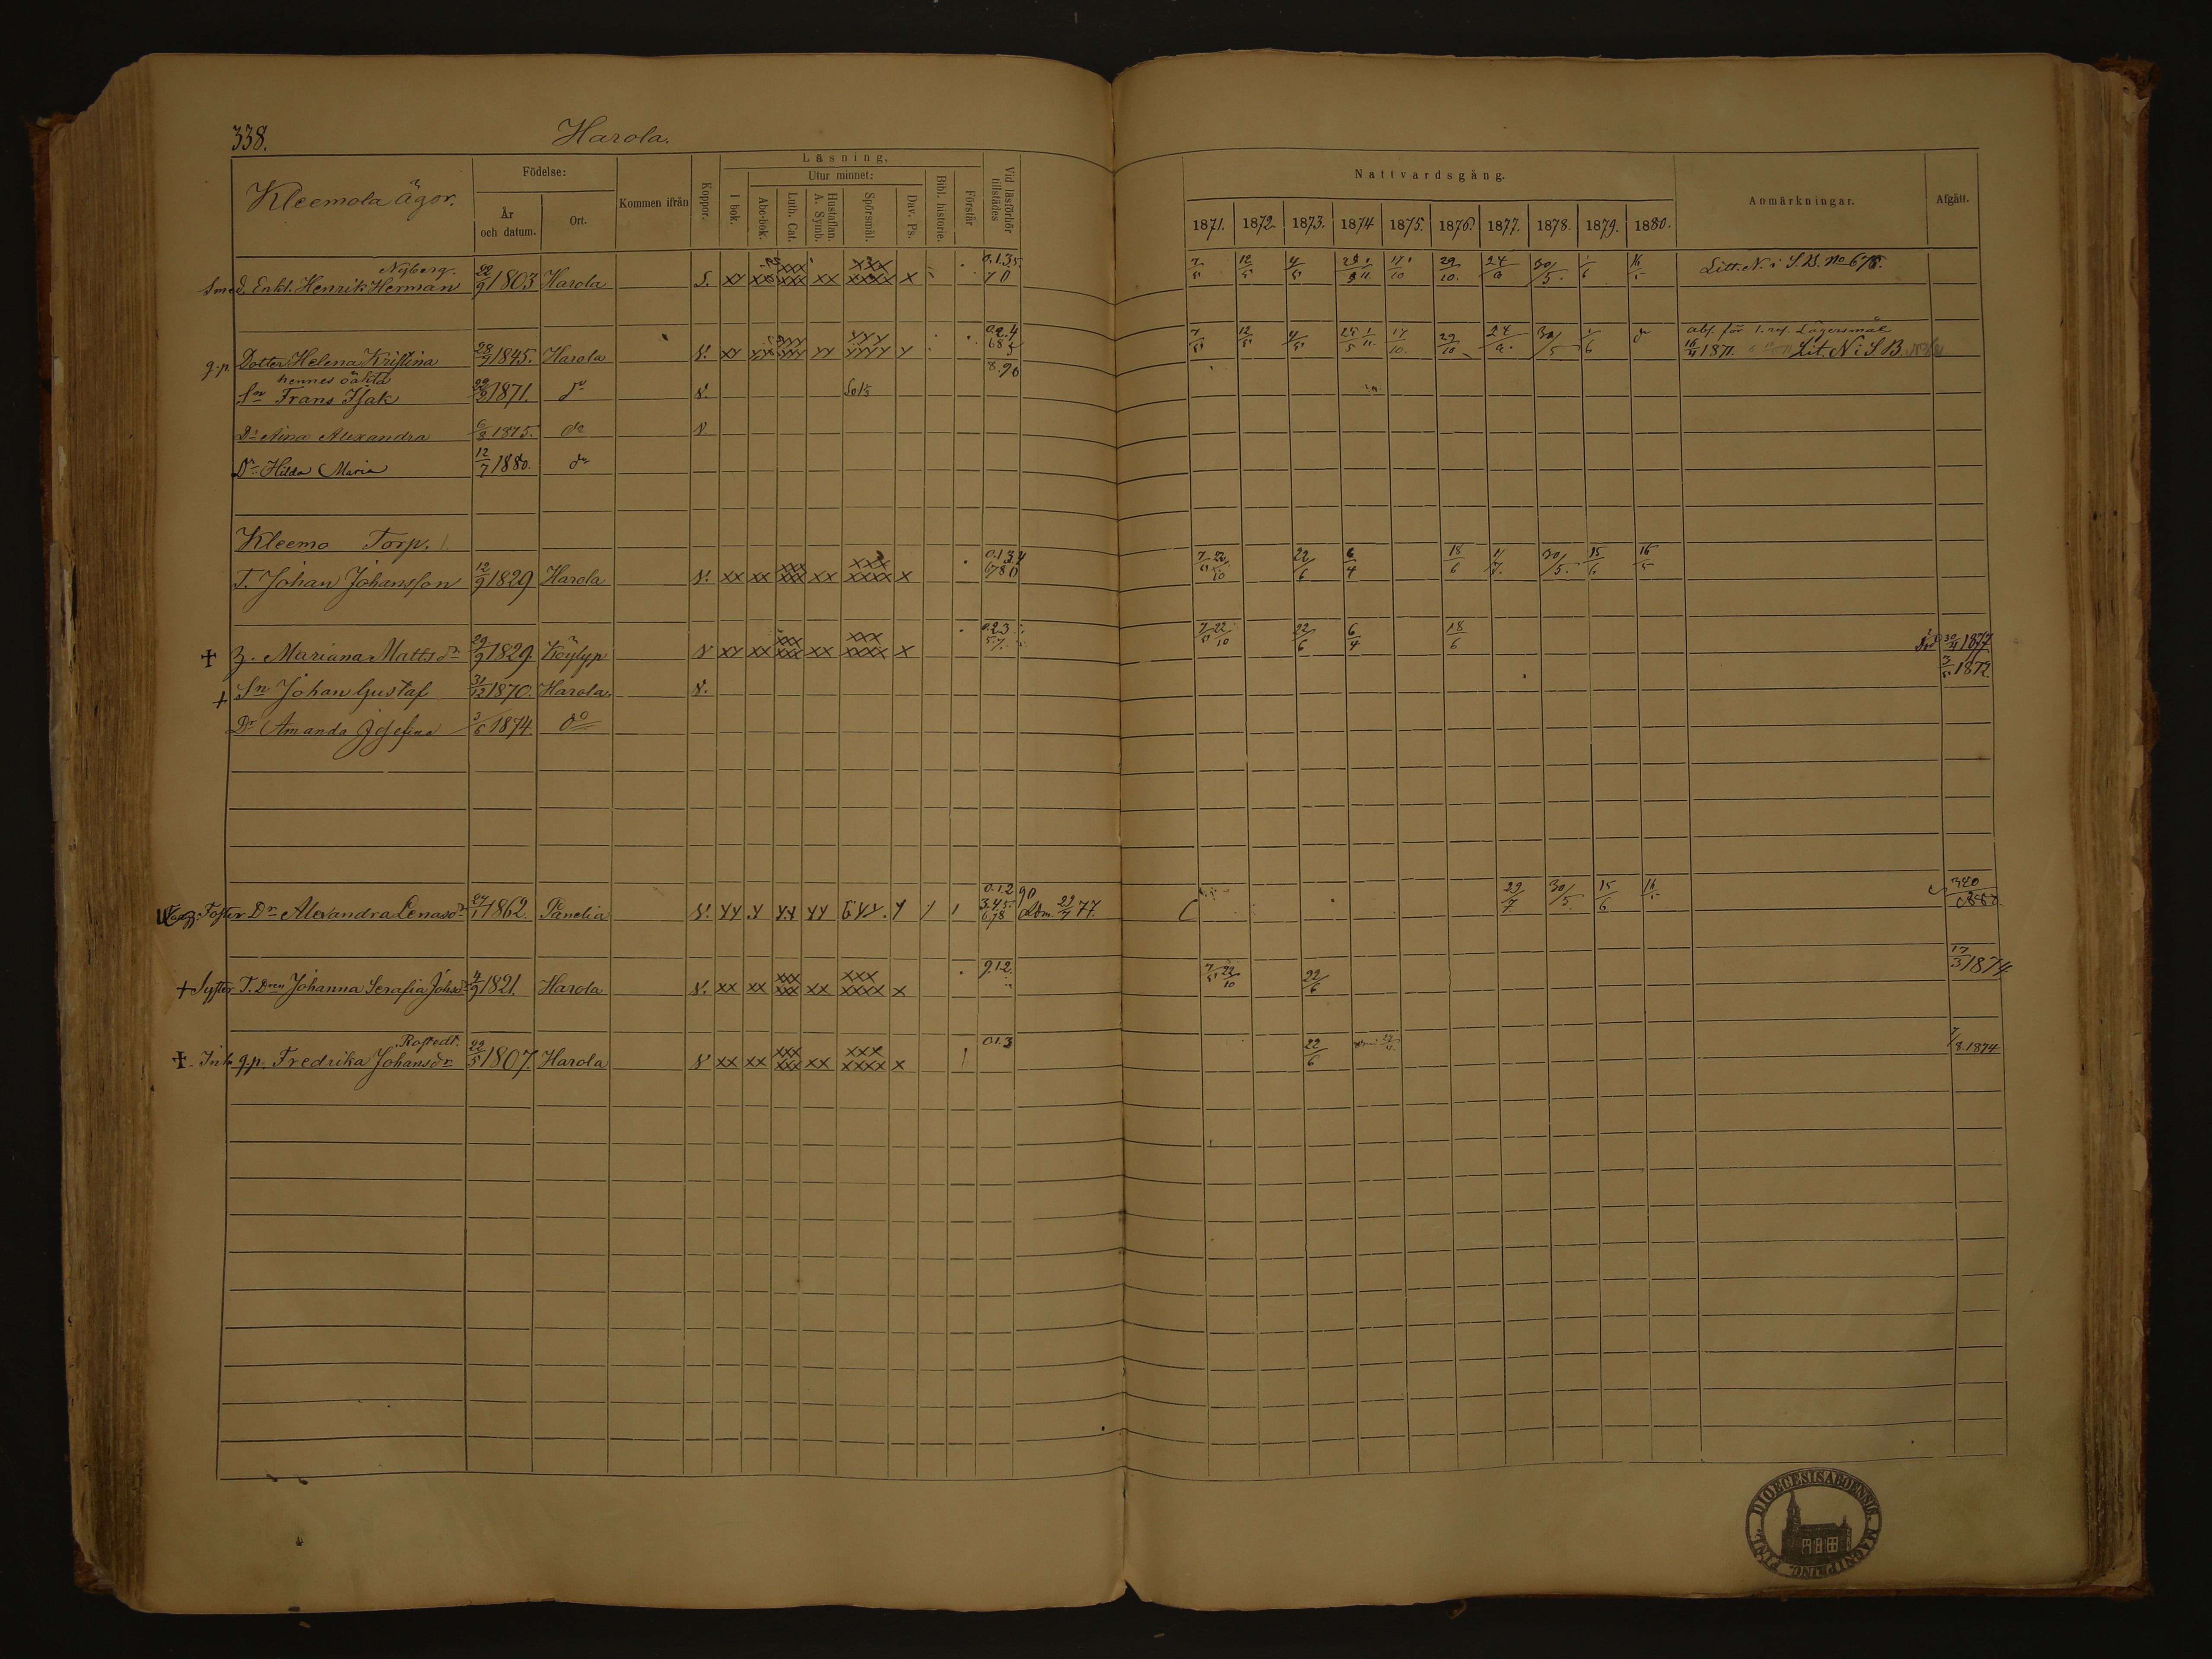 338.
Harola.
Kleemola ägor.
Födelse:
År och datum.
Ort.
Kommen ifrån
Koppor.
Läsning,
I bok.
Utur minnet:
Abc-bok.
Luth. Cat.
Hustaflan. A. Symb.
Spörsmål.
Dav. Ps.
Bibl. historie.
Förstår
Vid läsförhör tillstädes
Nattvardsgång.
1871. 1872. 1873. 1874 1875. 1876. 1877. 1878. 1879. 1880.
Anmärkningar.
Afgått.
Nyberg.
Smed. Enkl. Henrik Herman 22/9 1803 Harola S. xx xxx xxx xx xxxx x 0.1.3.5. 7 0 7/5 12/5 17/10 29/10. 24/9 30/5. 1/6 16/5 Litt. N. i S.B. no 678.
g.p. Dotter Helena Kristina 28/9 1845. Harola V. xx 0.2.4 68 7/5 12/5 17/10. 29/10 24/9. 30/5 1/6 abs. för 1. res. Lägersmål
16/4 1871. Lit. N i S B.
8.90
hennes oäkta
Sn Frans Isak 1871. do V.
Dr Aina Alexandra 6/8 1875. do V
Dr Hilda Maria 12/7 1880. do
Kleemo Torp.
T. Johan Johansson 12/9 1829 Harola V. xx xx xxx xx xxxx x 0.1.3.4 6780 7/5 22/10 22/6 6/4 18/6 30/5. 15/6 16/5
+ h. Mariana Mattsdr 29/9 1829. Köylyp V xx xx xxx xx xxxx x 0.2.3 5.7. 7/5 22/10 22/6 6/4 18/6 30/4 1877
+ Sn Johan Gustaf 31/12 1870. Harola. V. 3/5 1872.
Dr Amanda Josefina 3/6 1874. do
Foster Dr Alexandra Lenasdr 27/1 1862. Panelia V. xx x xx xx x 0.1.2 90 3.4.5. 678 Adm. 29/7 77. 29/7 30/5. 15/6 16/5 340
+ Syster T. Dren Johanna Serafia Johsdr 4/9 1821. Harola V. xx xx xxx xx xxxx x 9.1.2. 7/5 22/10 22/6 17/3 1874
Rostedt.
+ Inh. g.p. Fredrika Johansdr 22/5 1807. Harola V xx xx xxx xx xxxx x 0.1.3 22/6 7/8. 1874
DIOECESIS ABOENSIS. MAGNI PRINC. FINL.